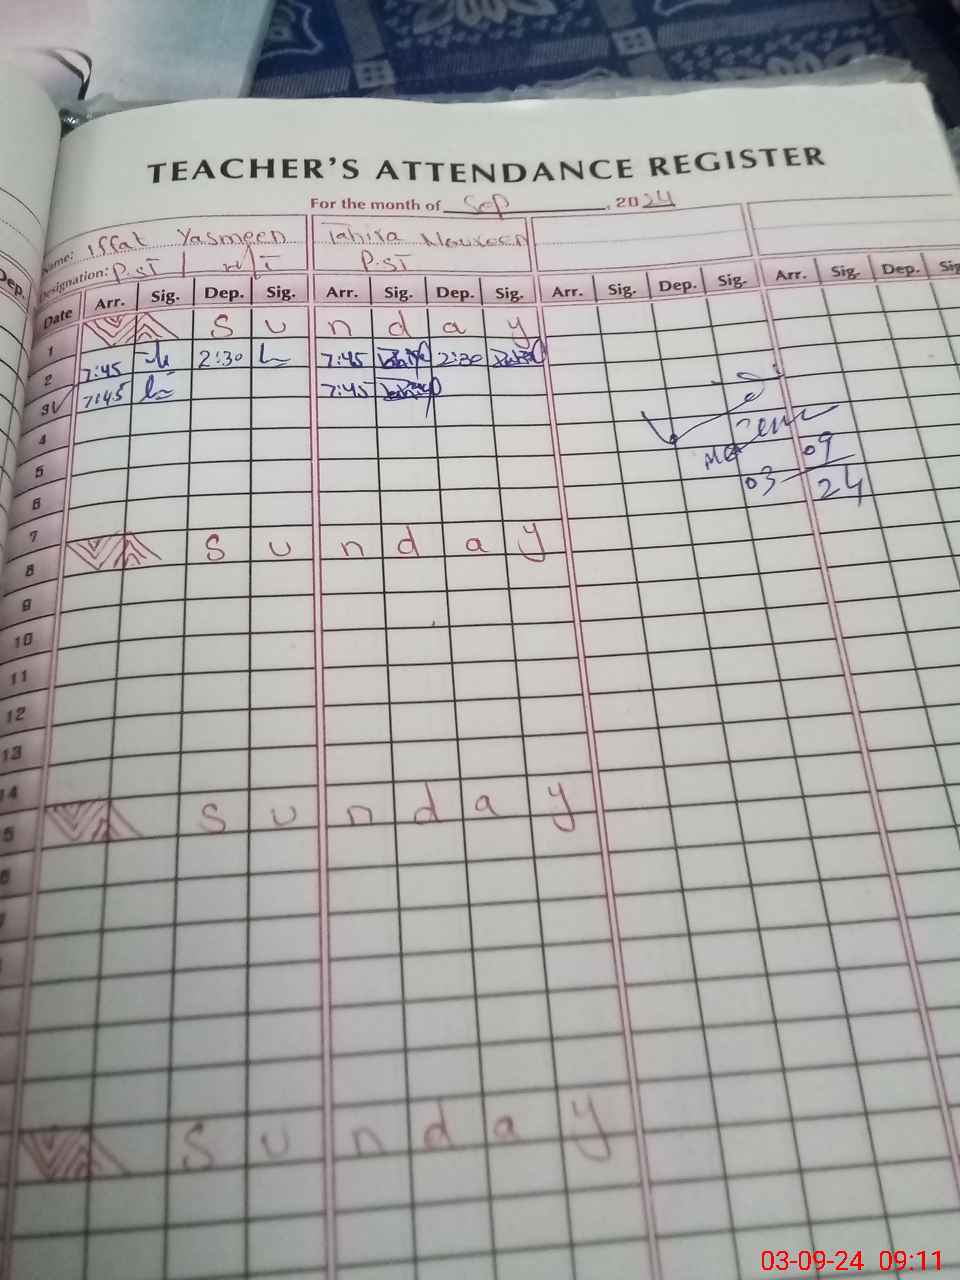 TEACHER'S ATTENDANCE REGISTER
For the month of Sep, 2024
Name: Iffat Yasmeen Tahira Noureen
Designation: P.ST P.ST
Date Arr. Sig. Dep. Sig. Arr. Sig. Dep. Sig. Arr. Sig. Dep. Sig. Arr. Sig. Dep. Sig
Dep.
1 Sunday
2 7:45 2:30 7:45 2:30
3 7:45 7:45
4
5
6
7
8 Sunday
9
10
11
12
13
14
5 Sunday
Sunday
03 09 24
03-09-24 09:11